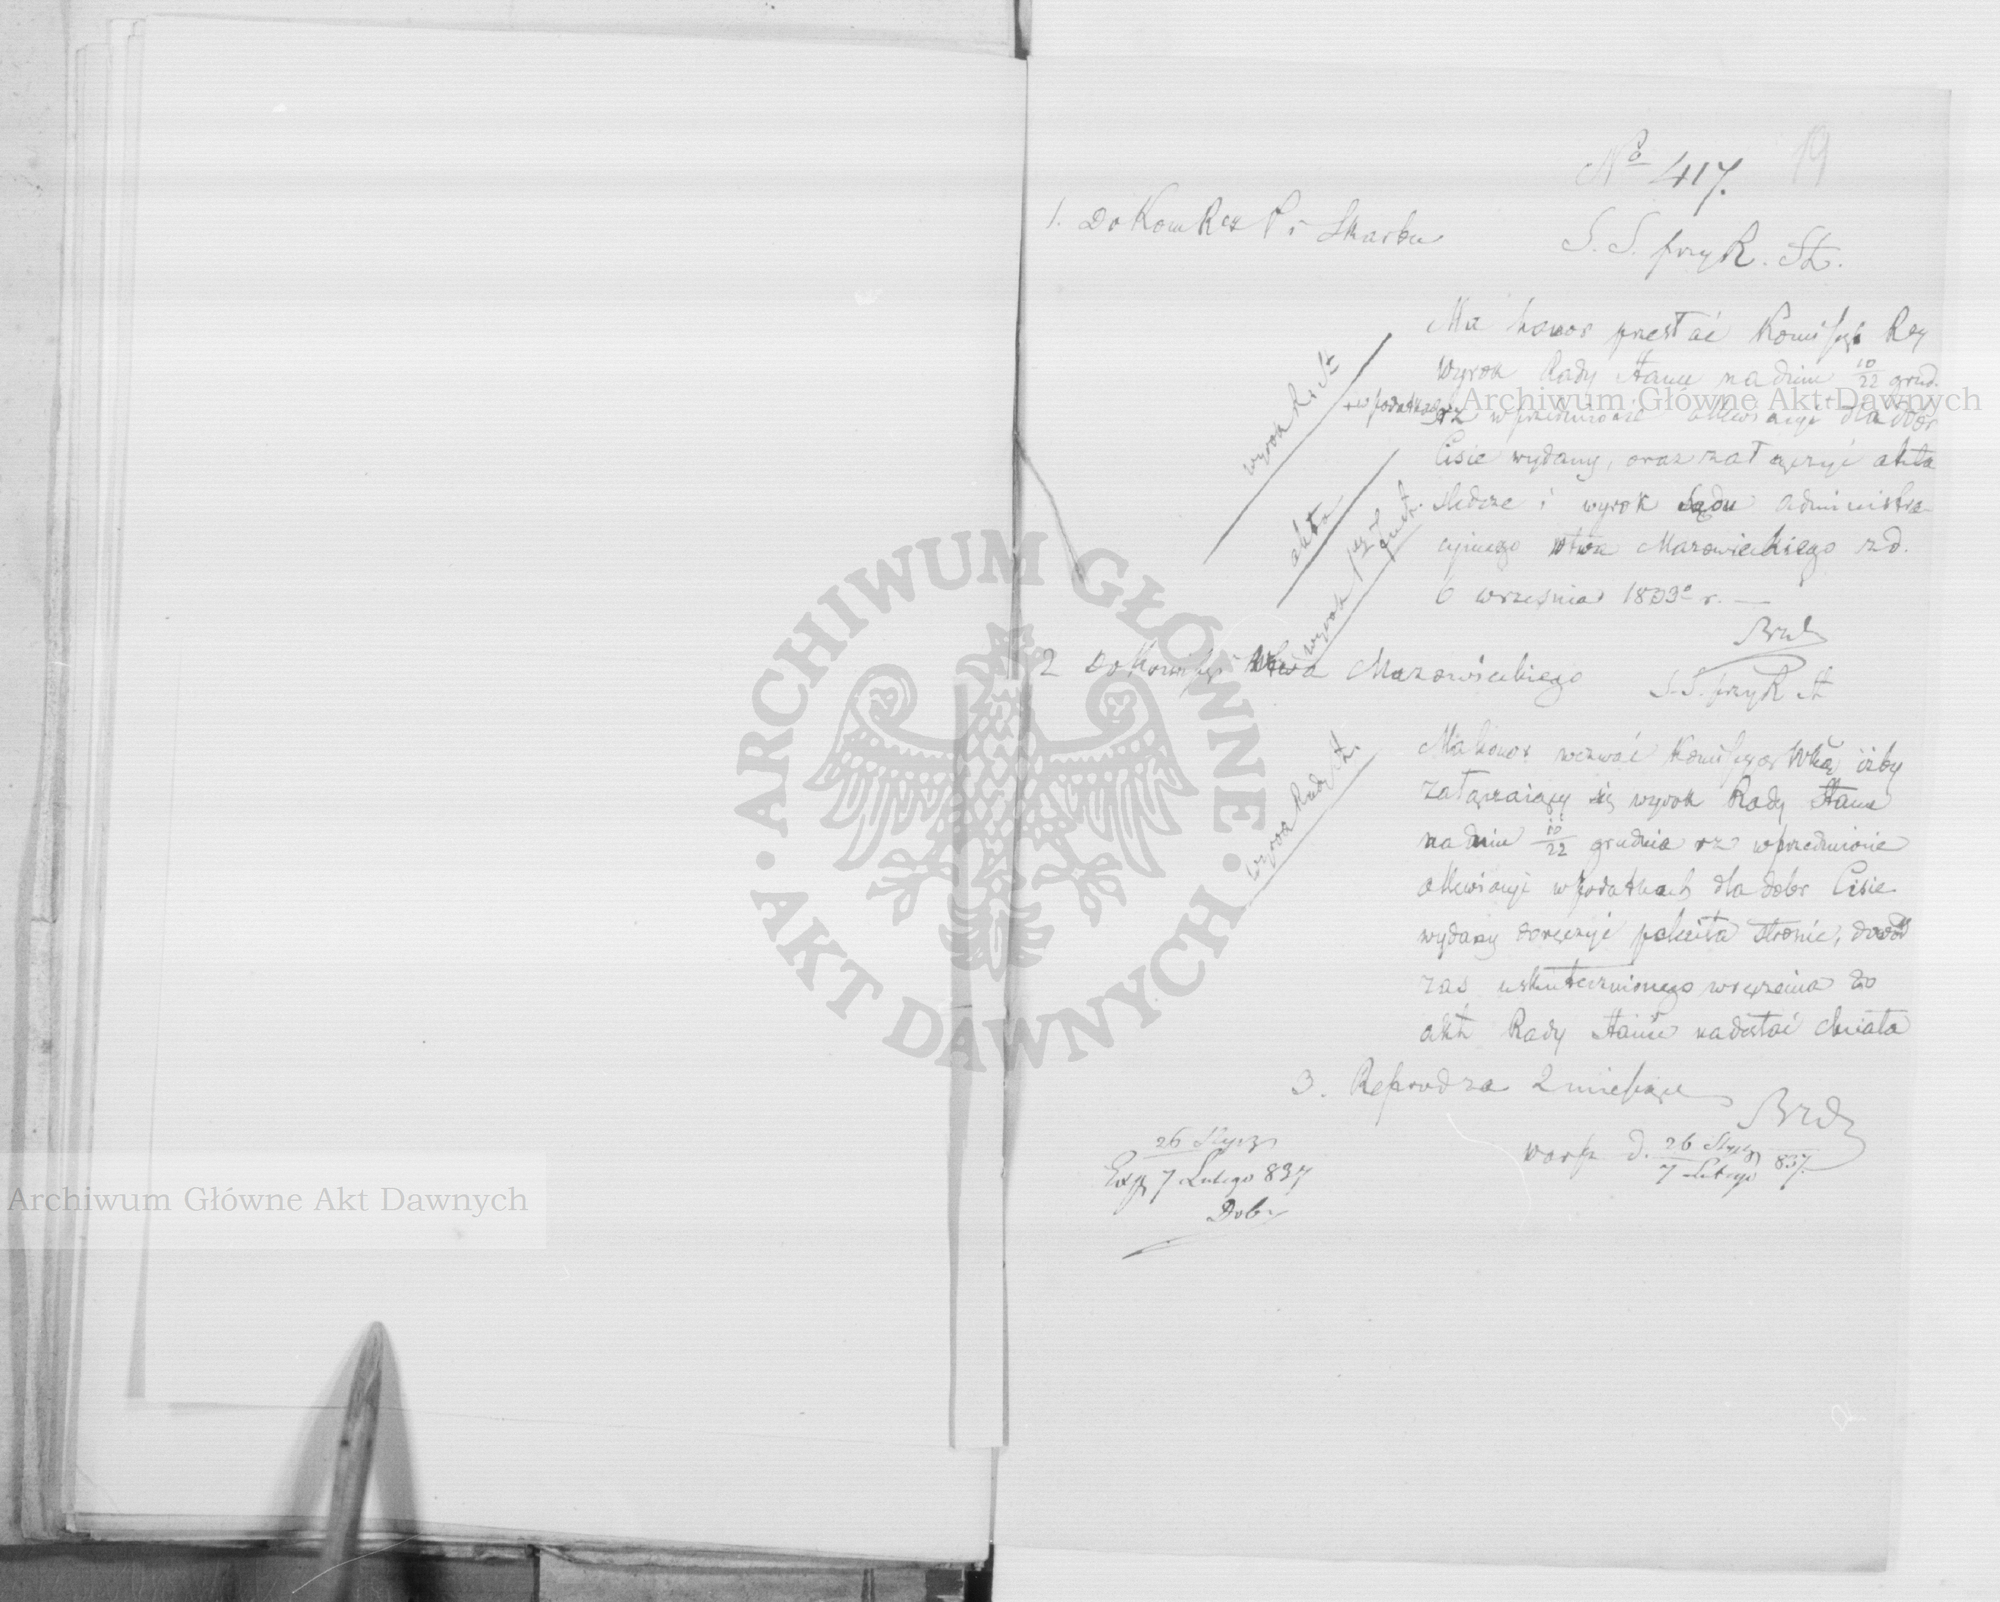 19
No 417.
1. Do Kom Rz P i Skarbu
S. S. przy R. St.
Ma honor przesłać Kommissyi Rz
wyrok Rady Stanu na dniu 10/22 grud.
rz w przedmiocie allewiacyi dla dóbr
+ w podatkach
Cisie wydany, oraz załączyć akta
śledcze i wyrok Sądu administra
cyjnego wtwa Mazowieckiego z d.
6 września 1803 r. —
wyrok R. St.
akta
wyrok
2 Do Kommissyi Wtwa Mazowieckiego
S. S. przy R St
Ma honor wezwać Kommissyą Wką iżby
załączaiący się wyrok Rady Stanu
na dniu 10/22 grudnia rz w przedmiocie
allewiacyi w podatkach dla dóbr Cisie
wydany doręczyć poleciła stronie, dowód
zaś uskutecznionego wręczenia do
akt Rady Stanu nadesłać chciała
wyrok Rady St.
3. Reprod za 2 miesiące
26 Stycz
Exp 7 Lutego 837
warsz d. 26 Stycz
7 Lutego 837.
Archiwum Główne Akt Dawnych
Archiwum Główne Akt Dawnych
ARCHIWUM GŁÓWNE
AKT DAWNYCH